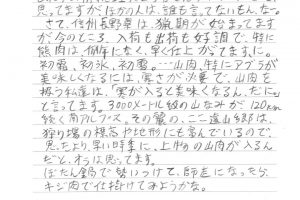 思ってますがほかの人は誰も言ってないもんな〜。
さて、信州長野県は、猟期が始まってますが、今のところ、入荷も出荷も好調で、特に熊肉は、例年になく、早く仕上がってますに。
初霜、初氷、初雪…山肉、特にアブラが
美味しくなるには、寒さが必要で、山肉を
扱う私達は、「寒が入ると美味くなるんだに」
と言ってます。3000メートル級の山なみが120km
続く南アルプス、その麓の、ここ遠山郷は、
狩り場の標高や地形にも富んでいるので、
思ったより、早い時季に、上物の山肉が入るん
だと、オラは思ってます。
ぼたん鍋で勢いつけて、師走になったら、
キジ肉で仕掛けてみようかな。